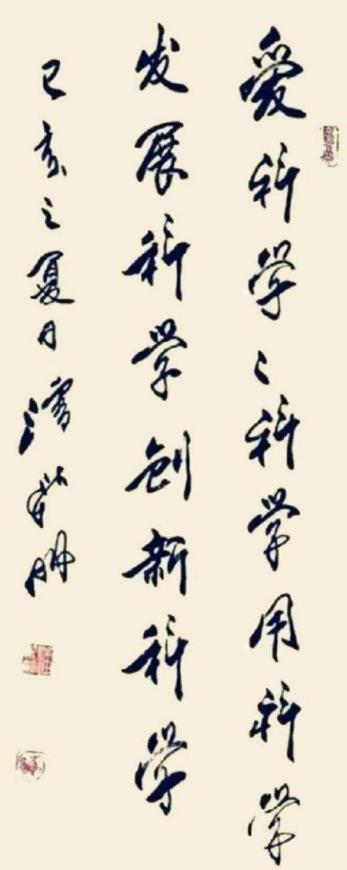 爱科学〻科学用科学
发展科学创新科学
己亥之夏